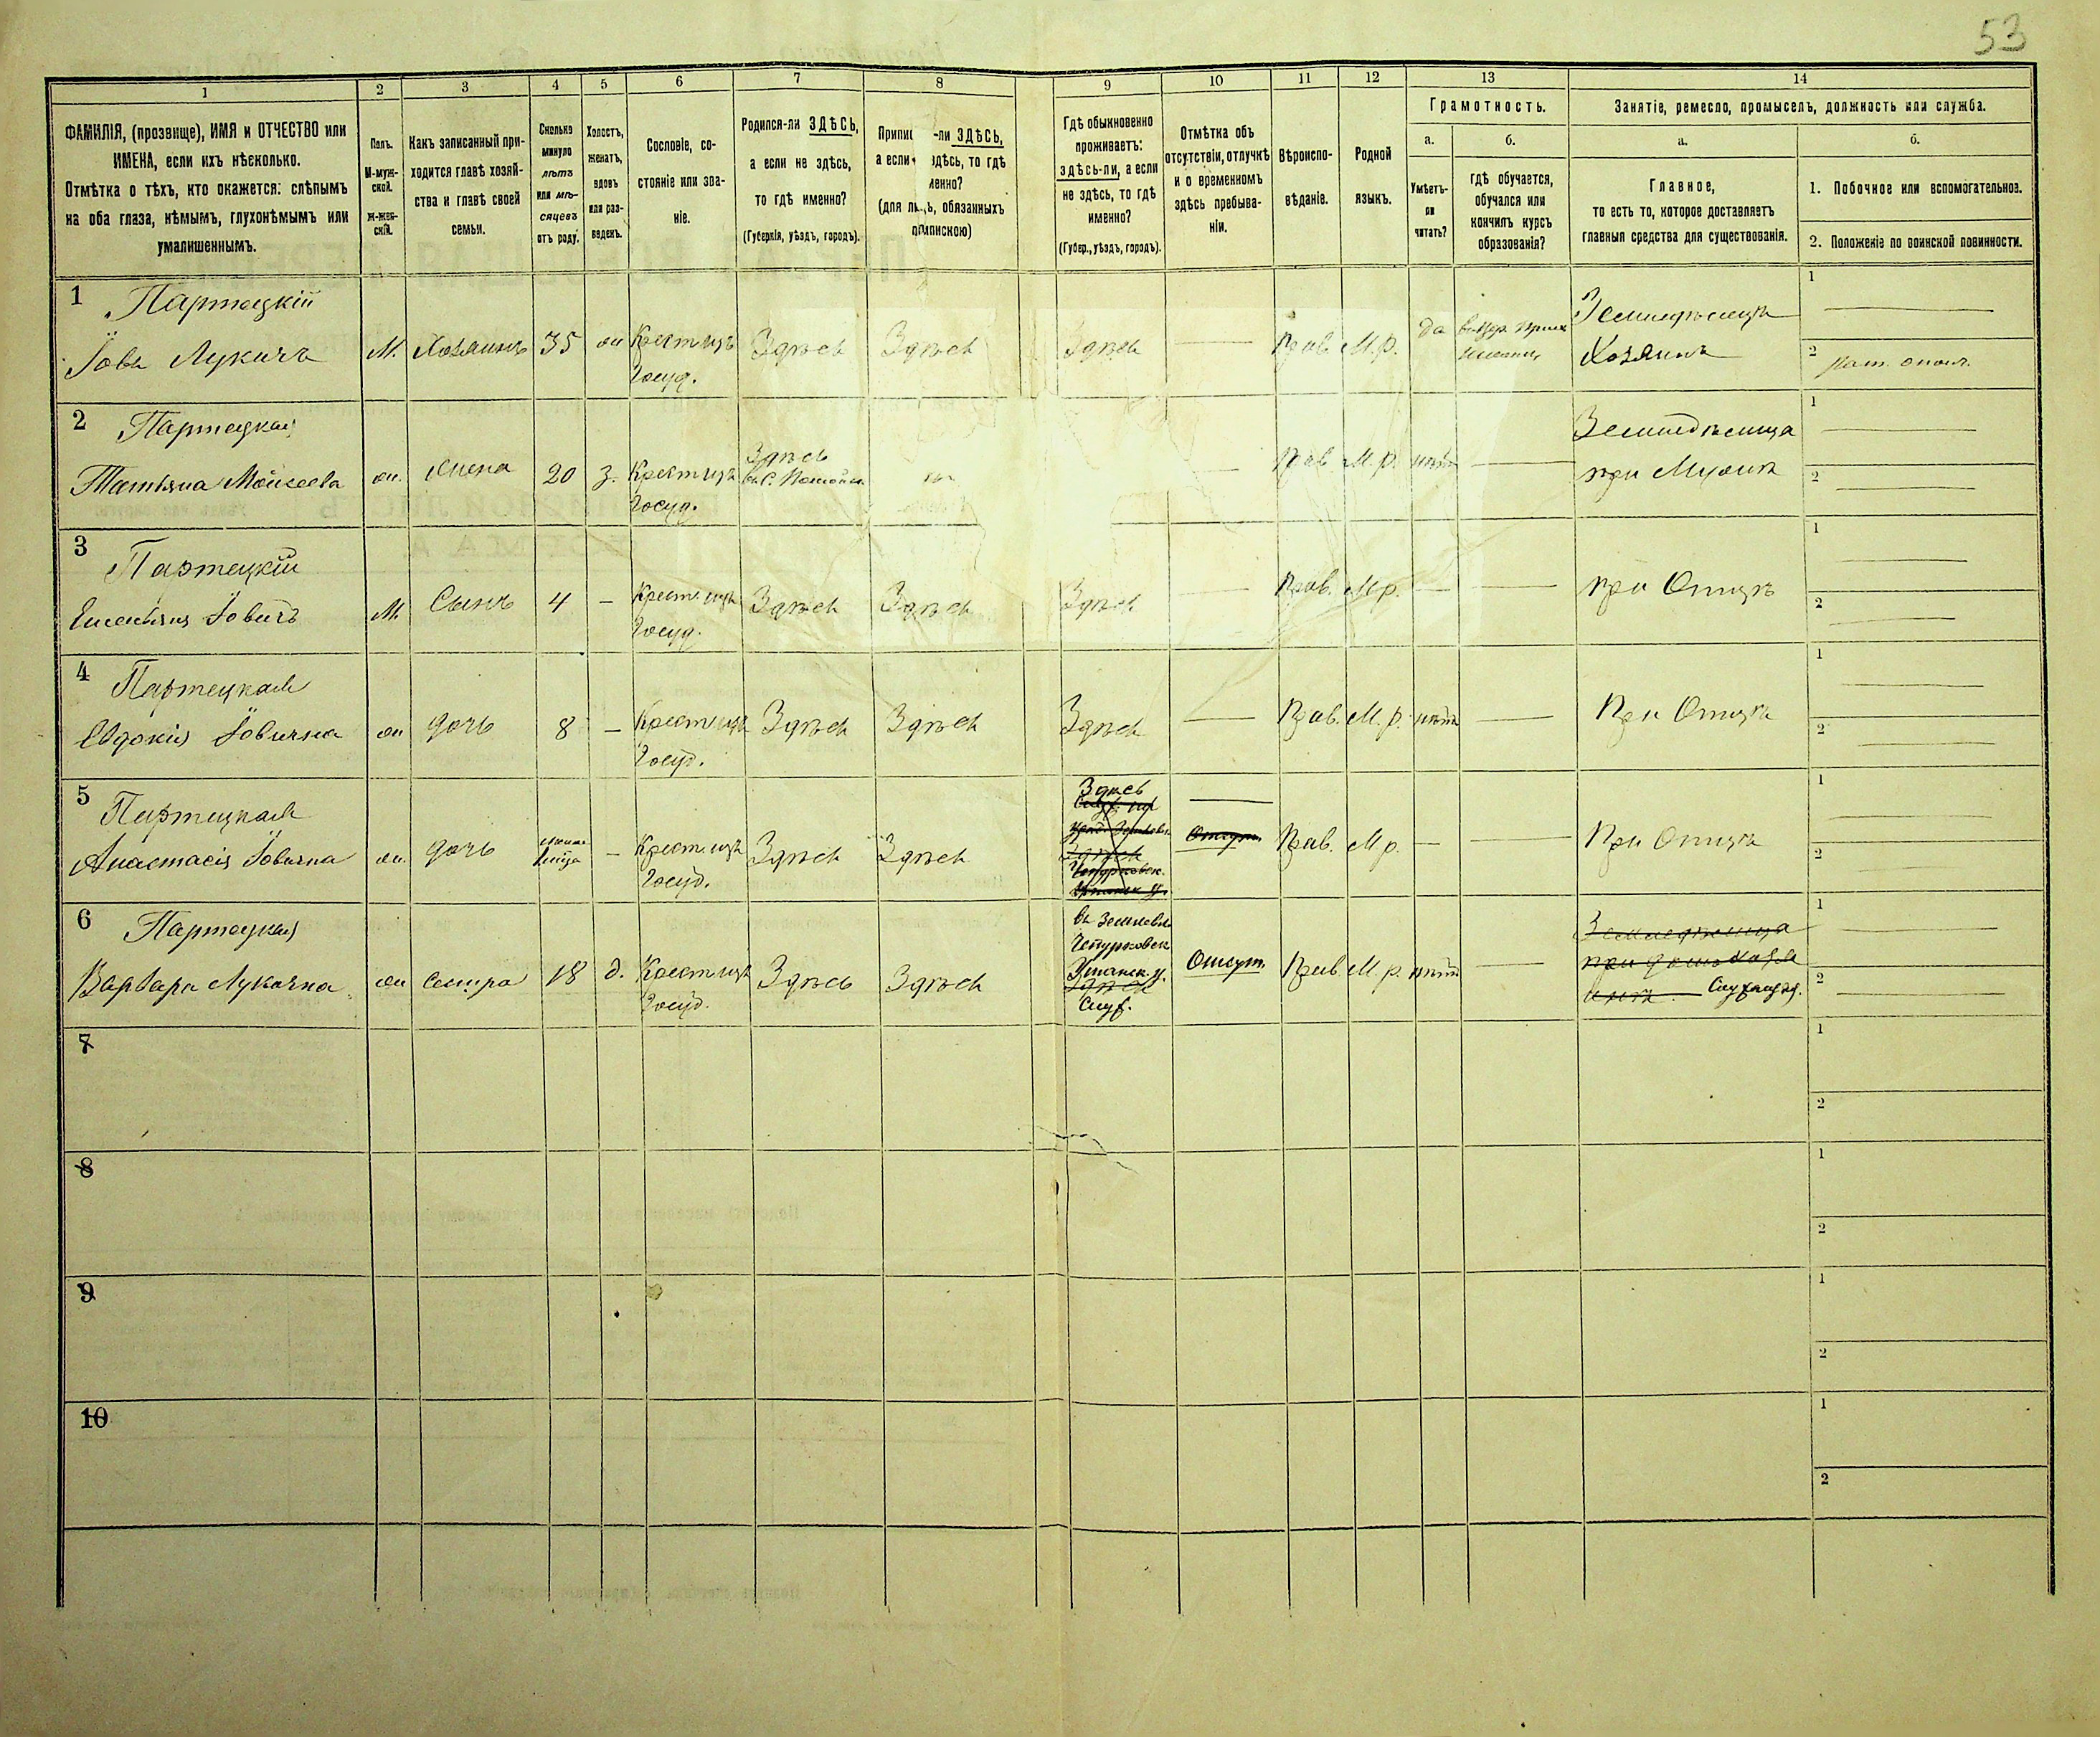 53
1 2 3 4 5 6 7 8 9 10 11 12 13 14
ФАМИЛІЯ, (прозвище), ИМЯ и ОТЧЕСТВО или
ИМЕНА, если ихъ нѣсколько.
Отмѣтка о тѣхъ, кто окажется: слѣпымъ
на оба глаза, нѣмымъ, глухонѣмымъ или
умалишеннымъ.
Полъ.
М-муж-
ской.
Ж-жен-
скій.
Какъ записанный при-
ходится главѣ хозяй-
ства и главѣ своей
семьи.
Сколько
минуло
лѣтъ
или мѣ-
сяцевъ
отъ роду.
Холостъ,
женатъ,
вдовъ
или раз-
веденъ.
Сословіе, со-
стояніе или зва-
ніе.
Родился-ли ЗДѢСЬ,
а если не здѣсь,
то гдѣ именно?
(Губернія, уѣздъ, городъ).
-ли ЗДѢСЬ,
а если здѣсь, то гдѣ
(для обязанныхъ
припискою)
Гдѣ обыкновенно
проживаетъ:
здѣсь-ли, а если
не здѣсь, то гдѣ
именно?
(Губер., уѣздъ, городъ).
Отмѣтка объ
отсутствіи, отлучкѣ
и о временномъ
здѣсь пребыва-
ніи.
Вѣроиспо-
вѣданіе.
Родной
языкъ.
Грамотность.
а.
Умѣетъ-
ли
читать?
б.
гдѣ обучается,
обучался или
кончилъ курсъ
образованія?
Занятіе, ремесло, промыселъ, должность или служба.
а.
Главное,
то есть то, которое доставляетъ
главныя средства для существованія.
б.
1. Побочное или вспомогательное.
2. Положеніе по воинской повинности.
1 Партецкій
Іовъ Лукичъ М. Хозяинъ 35 ж Крест. изъ Здѣсь Здѣсь Здѣсь — Прав. М.р. да
Госуд.
Земледѣлецъ
Хозяинъ
1 —
2 рат. опол.
2 Партецкая
Татьяна Моисеева ж. жена 20 з. Крест. изъ Здѣсь
Госуд.
— Прав. М.р. нѣтъ —
Земледѣлица
при Мужѣ
1 —
2 —
3 Партецкій
Емельянъ Іовичъ М. Сынъ 4 — Крест. изъ Здѣсь Здѣсь Здѣсь — Прав. М.р. — — при Отцѣ
Госуд.
1 —
2 —
4 Партецкая
Евдокія Іовична ж дочь 8 — Крест. изъ Здѣсь Здѣсь Здѣсь — Прав. М.р. нѣтъ — При Отцѣ
Госуд.
1 —
2 —
5 Партецкая
Анастасія Іовична ж. дочь — Крест. изъ Здѣсь Здѣсь
Госуд.
Здѣсь
Здѣсь
Чепурковск.
— Отсут. Прав. М.р. — — При Отцѣ
1 —
2 —
6 Партецкая
Варвара Лукична ж сестра 18 д. Крест. изъ Здѣсь Здѣсь
Госуд.
Чепурковск.
Здѣсь
Служ.
Отсут. Прав. М.р. нѣтъ —
Земледѣлица
1 —
2 —
7
1
2
8
1
2
9
1
2
10
1
2